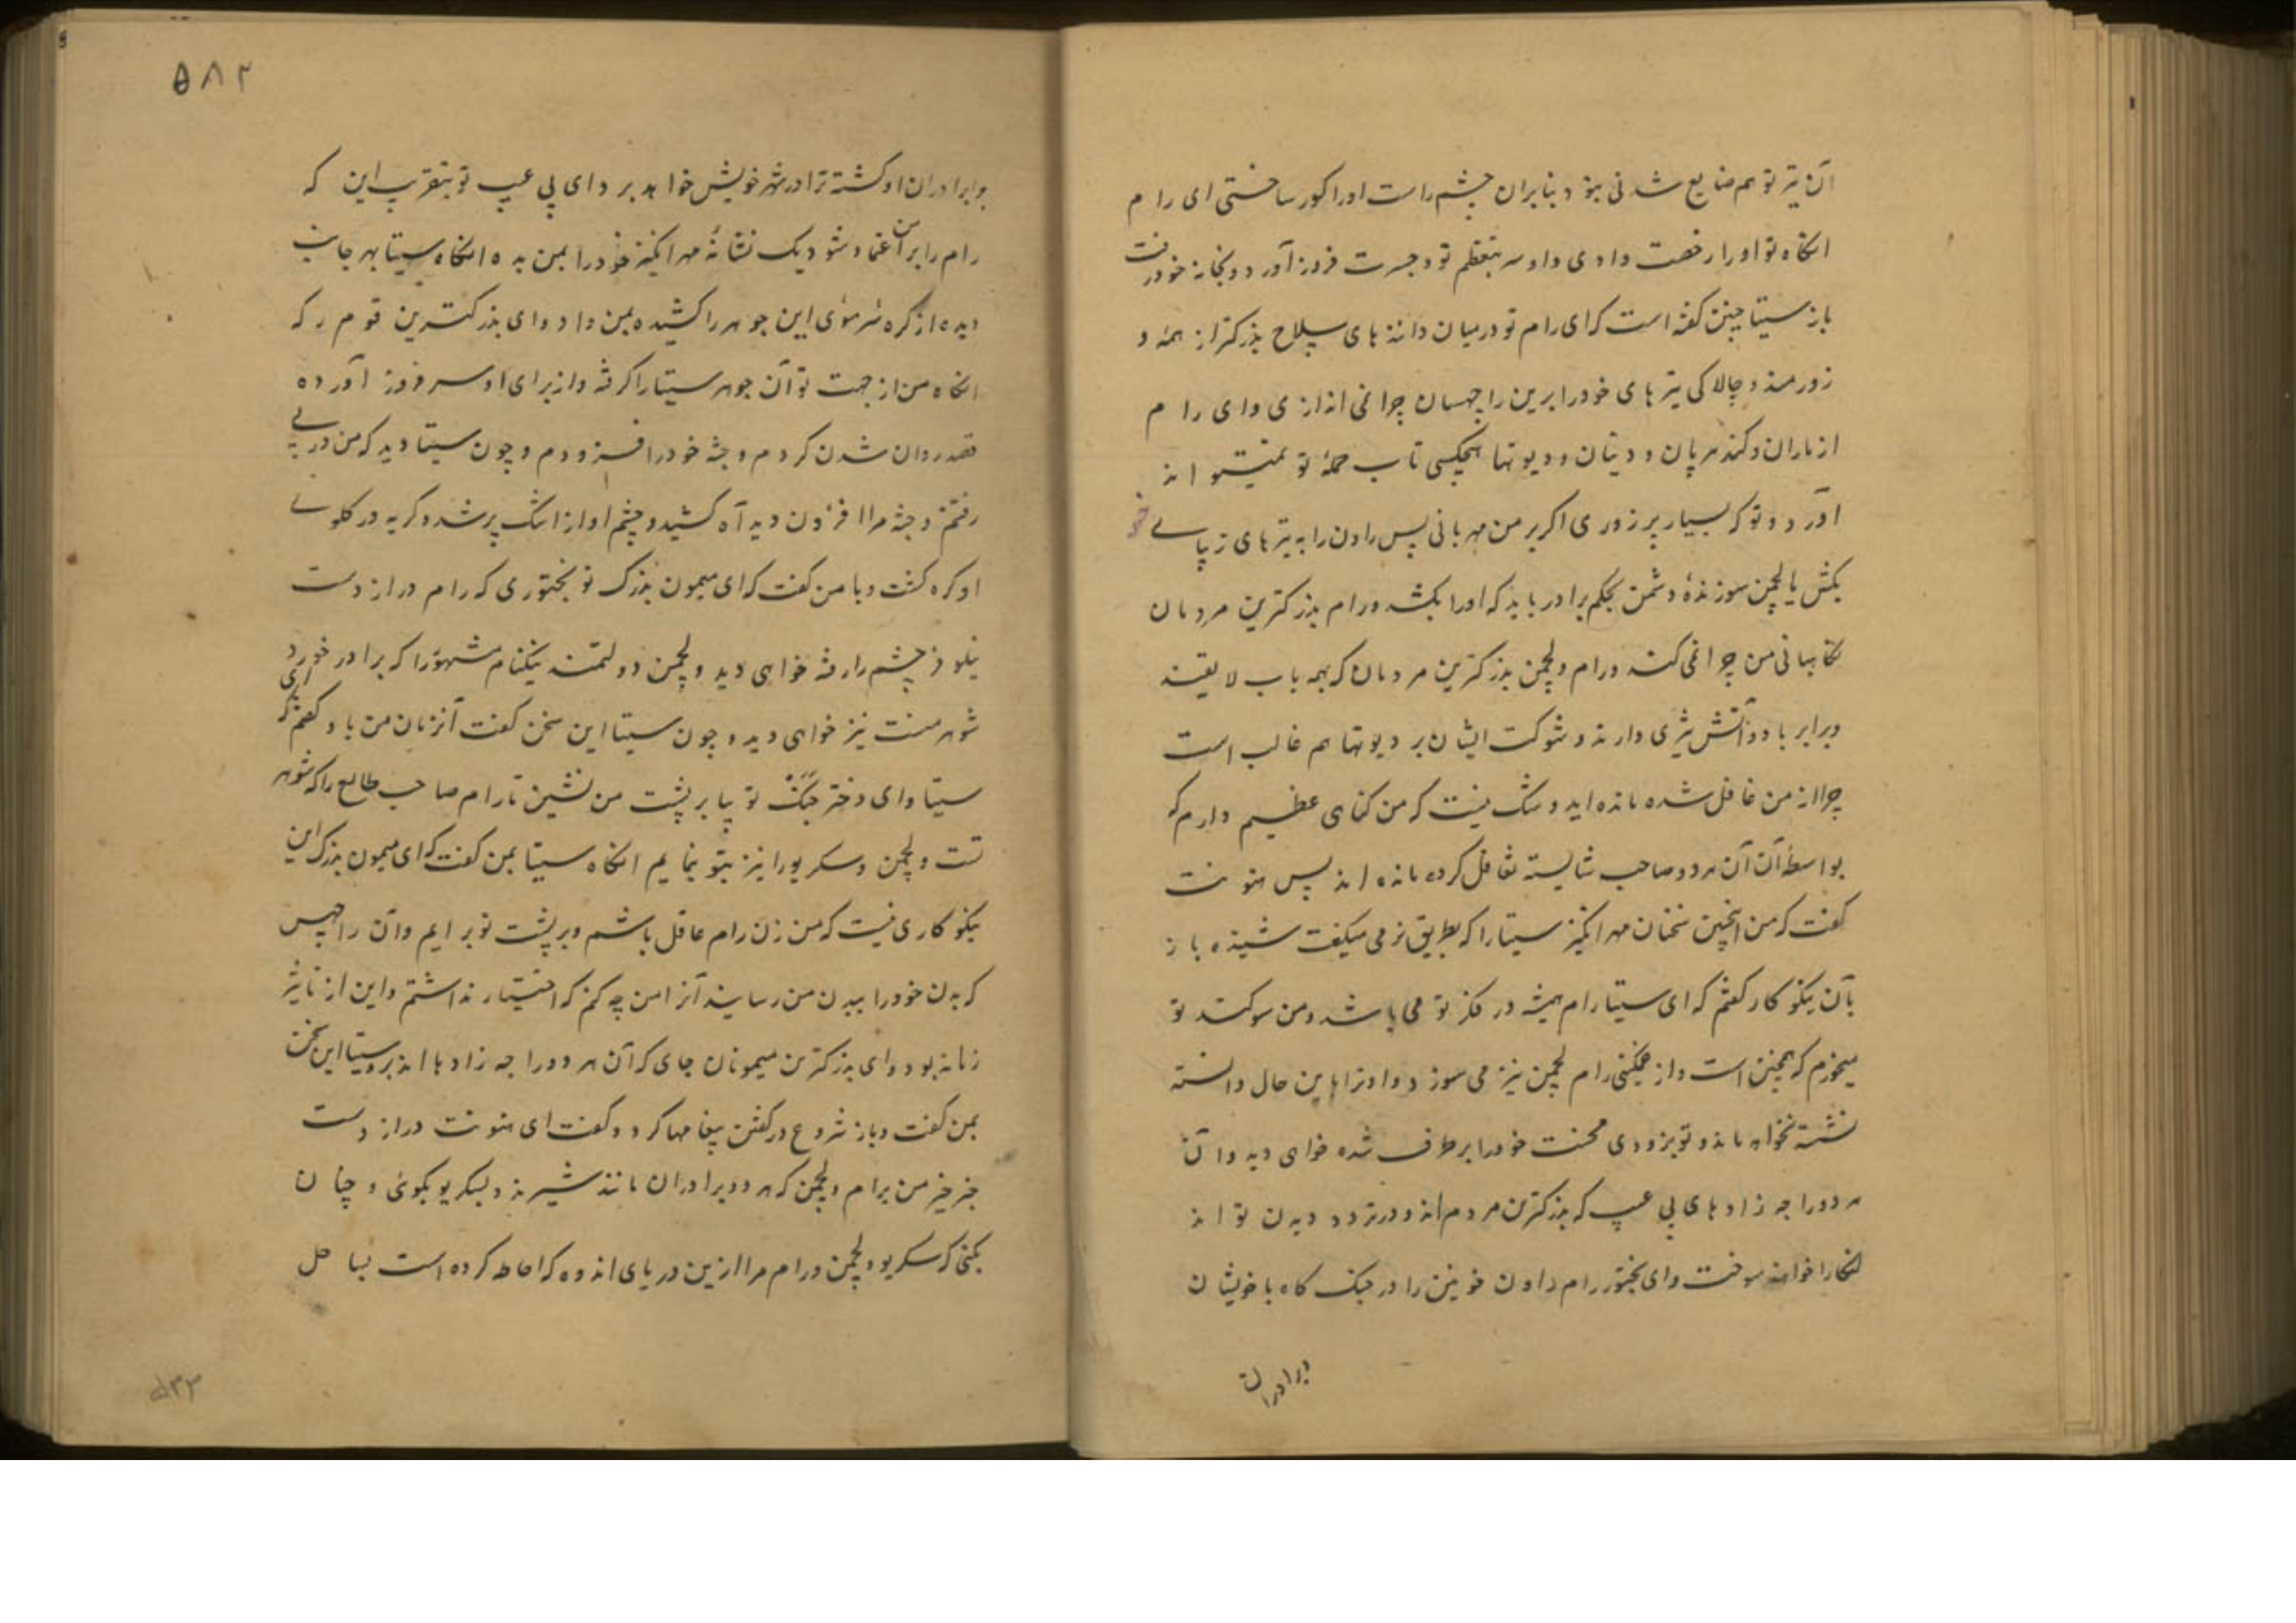 آن تیر تو هم ضایع شدنی نبود بنابران چشم راست او را کور ساختی ای رام
انگاه تو او را رخصت دادی و او سر بتعظیم تو و جسرت فرود آورد و بخانه خود رفت
باز سیتا چنین گفته است که ای رام تو در میان دانندهای سلاح بزرکتر از همه و
زورمند و چالاکی تیرهای خود را برین راچهسان چرا نمی اندازی و ای رام
از ماران و کندهرپان و دیتان و دیوتها هیچکسی تاب حمله تو نمیتواند
آورد و تو که بسیار پر زوری اگر بر من مهربانی پس راون را به تیرهای
بکش یا لچمن سوزندهٔ دشمن بحکم برادر باید که او را بکشد و رام بزرکترین مردمان
نگاهبانی من چرا نمی کند و رام و لچمن بزرکترین مردمان که بهمه باب لایقند
و برابر باد و آتش تیزی دارند و شوکت ایشان بر دیوتها هم غالب است
چرا از من غافل شده مانده اید و شک نیست که من گناهی عظیم دارم که
بواسطهٔ آن آن هر دو صاحب شایسته تغافل کرده مانده اند پس هنونت
گفت که من اینچنین سخنان مهرانگیز سیتا را که بطریق نرمی میگفت شنیده باز
بآن نیکو کار گفتم که ای سیتا رام همیشه در فکر تو می باشد و من سوگند تو
میخورم که همچنین است و از غمگینی رام لچمن نیز می سوزد و او ترا باین حال دانسته
نشسته نخواهد ماند و تو بزودی محنت خود را برطرف شده خواهی دید و آن
هر دو راجه زادهای بی عیب که بزرکترین مردم اند و در تردد دیدن تو اند
لنکا را خواهند سوخت و ای بختور رام راون خونین را در جنک کاه با خویشان
برادران
۵۸۲
و برادران او کشته ترا در شهر خویش خواهد برد و ای بی عیب تو بتقریب این که
رام را بر آن اعتماد شود یک نشانهٔ مهرانگیز خود را بمن بده انگاه سیتا بهر جانب
دیده از گره سر موئی این جوهر را کشیده بمن داد و ای بزرکترین قوم رکه
انگاه من از جهت تو آن جوهر سیتا را گرفته و از برای او سر فرود آورده
قصد روان شدن کردم و جثه خود را افزودم و چون سیتا دید که من در پی
رفتنم و جثه مرا افزون دید آه کشید و چشم او از اشک پر شد و گریه در گلوی
او گره گشت و با من گفت که ای میمون بزرک تو بختوری که رام دراز دست
نیلوفر چشم را رفته خواهی دید و لچمن دولتمند نیکنام مشهور را که برادر خورد
شوهر منست نیز خواهی دید و چون سیتا این سخن گفت آنزمان من باو گفتم که ای
سیتا و ای دختر جنک تو بیا بر پشت من نشین تا رام صاحب طالع را که شوهر
تست و لچمن و سکریو را نیز بتو بنمایم انگاه سیتا بمن گفت که ای میمون بزرک این
نیکو کاری نیست که من زن رام عاقل باشم و بر پشت تو بر ایم و آن راچهس
که بدن خود را ببدن من رسانید آنرا من چه کنم که اختیار نداشتم و این از تاثیر
زمانه بود و ای بزرکترین میمونان جای که آن هر دو راجه زادها اند برو سیتا این سخن
بمن گفت و باز شروع در گفتن پیغامها کرد و گفت ای هنونت دراز دست
خبر خیر من برام و لچمن که هر دو برادران مانند شیرند و بسکریو بگوئی و چنان
بکنی که سکریو و لچمن و رام مرا ازین دریای اندوه که احاطه کرده است بساحل
۵۳۲